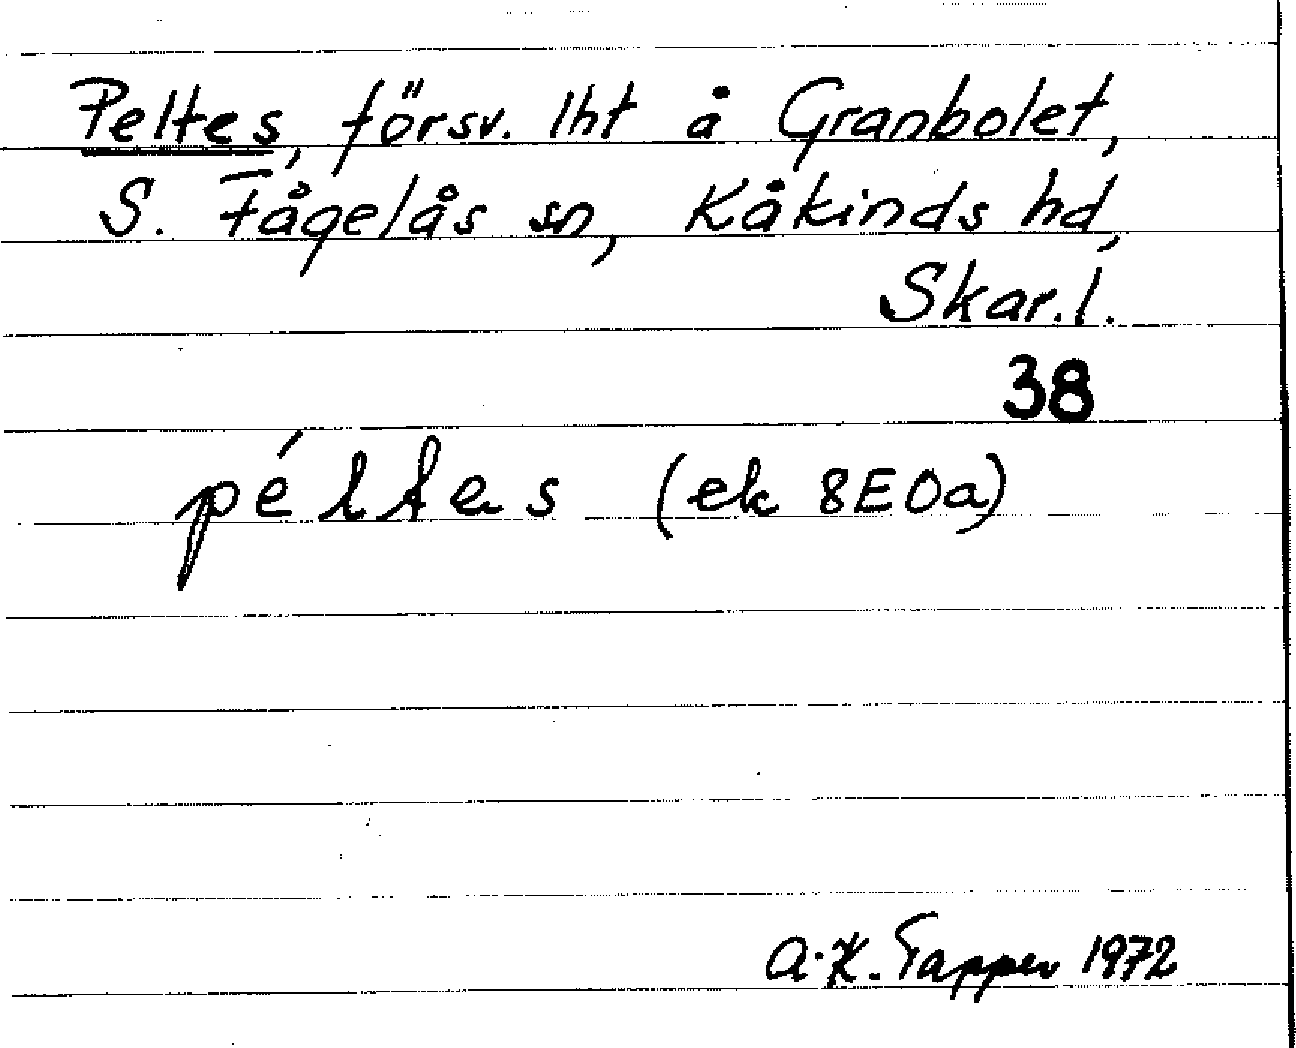 Peltes, försv. lht å Granbolet,
S. Fågelås sn, Kåkinds hd,
Skar. l.
38
péltes (ek 8E0a)
A.K. Tapper 1972